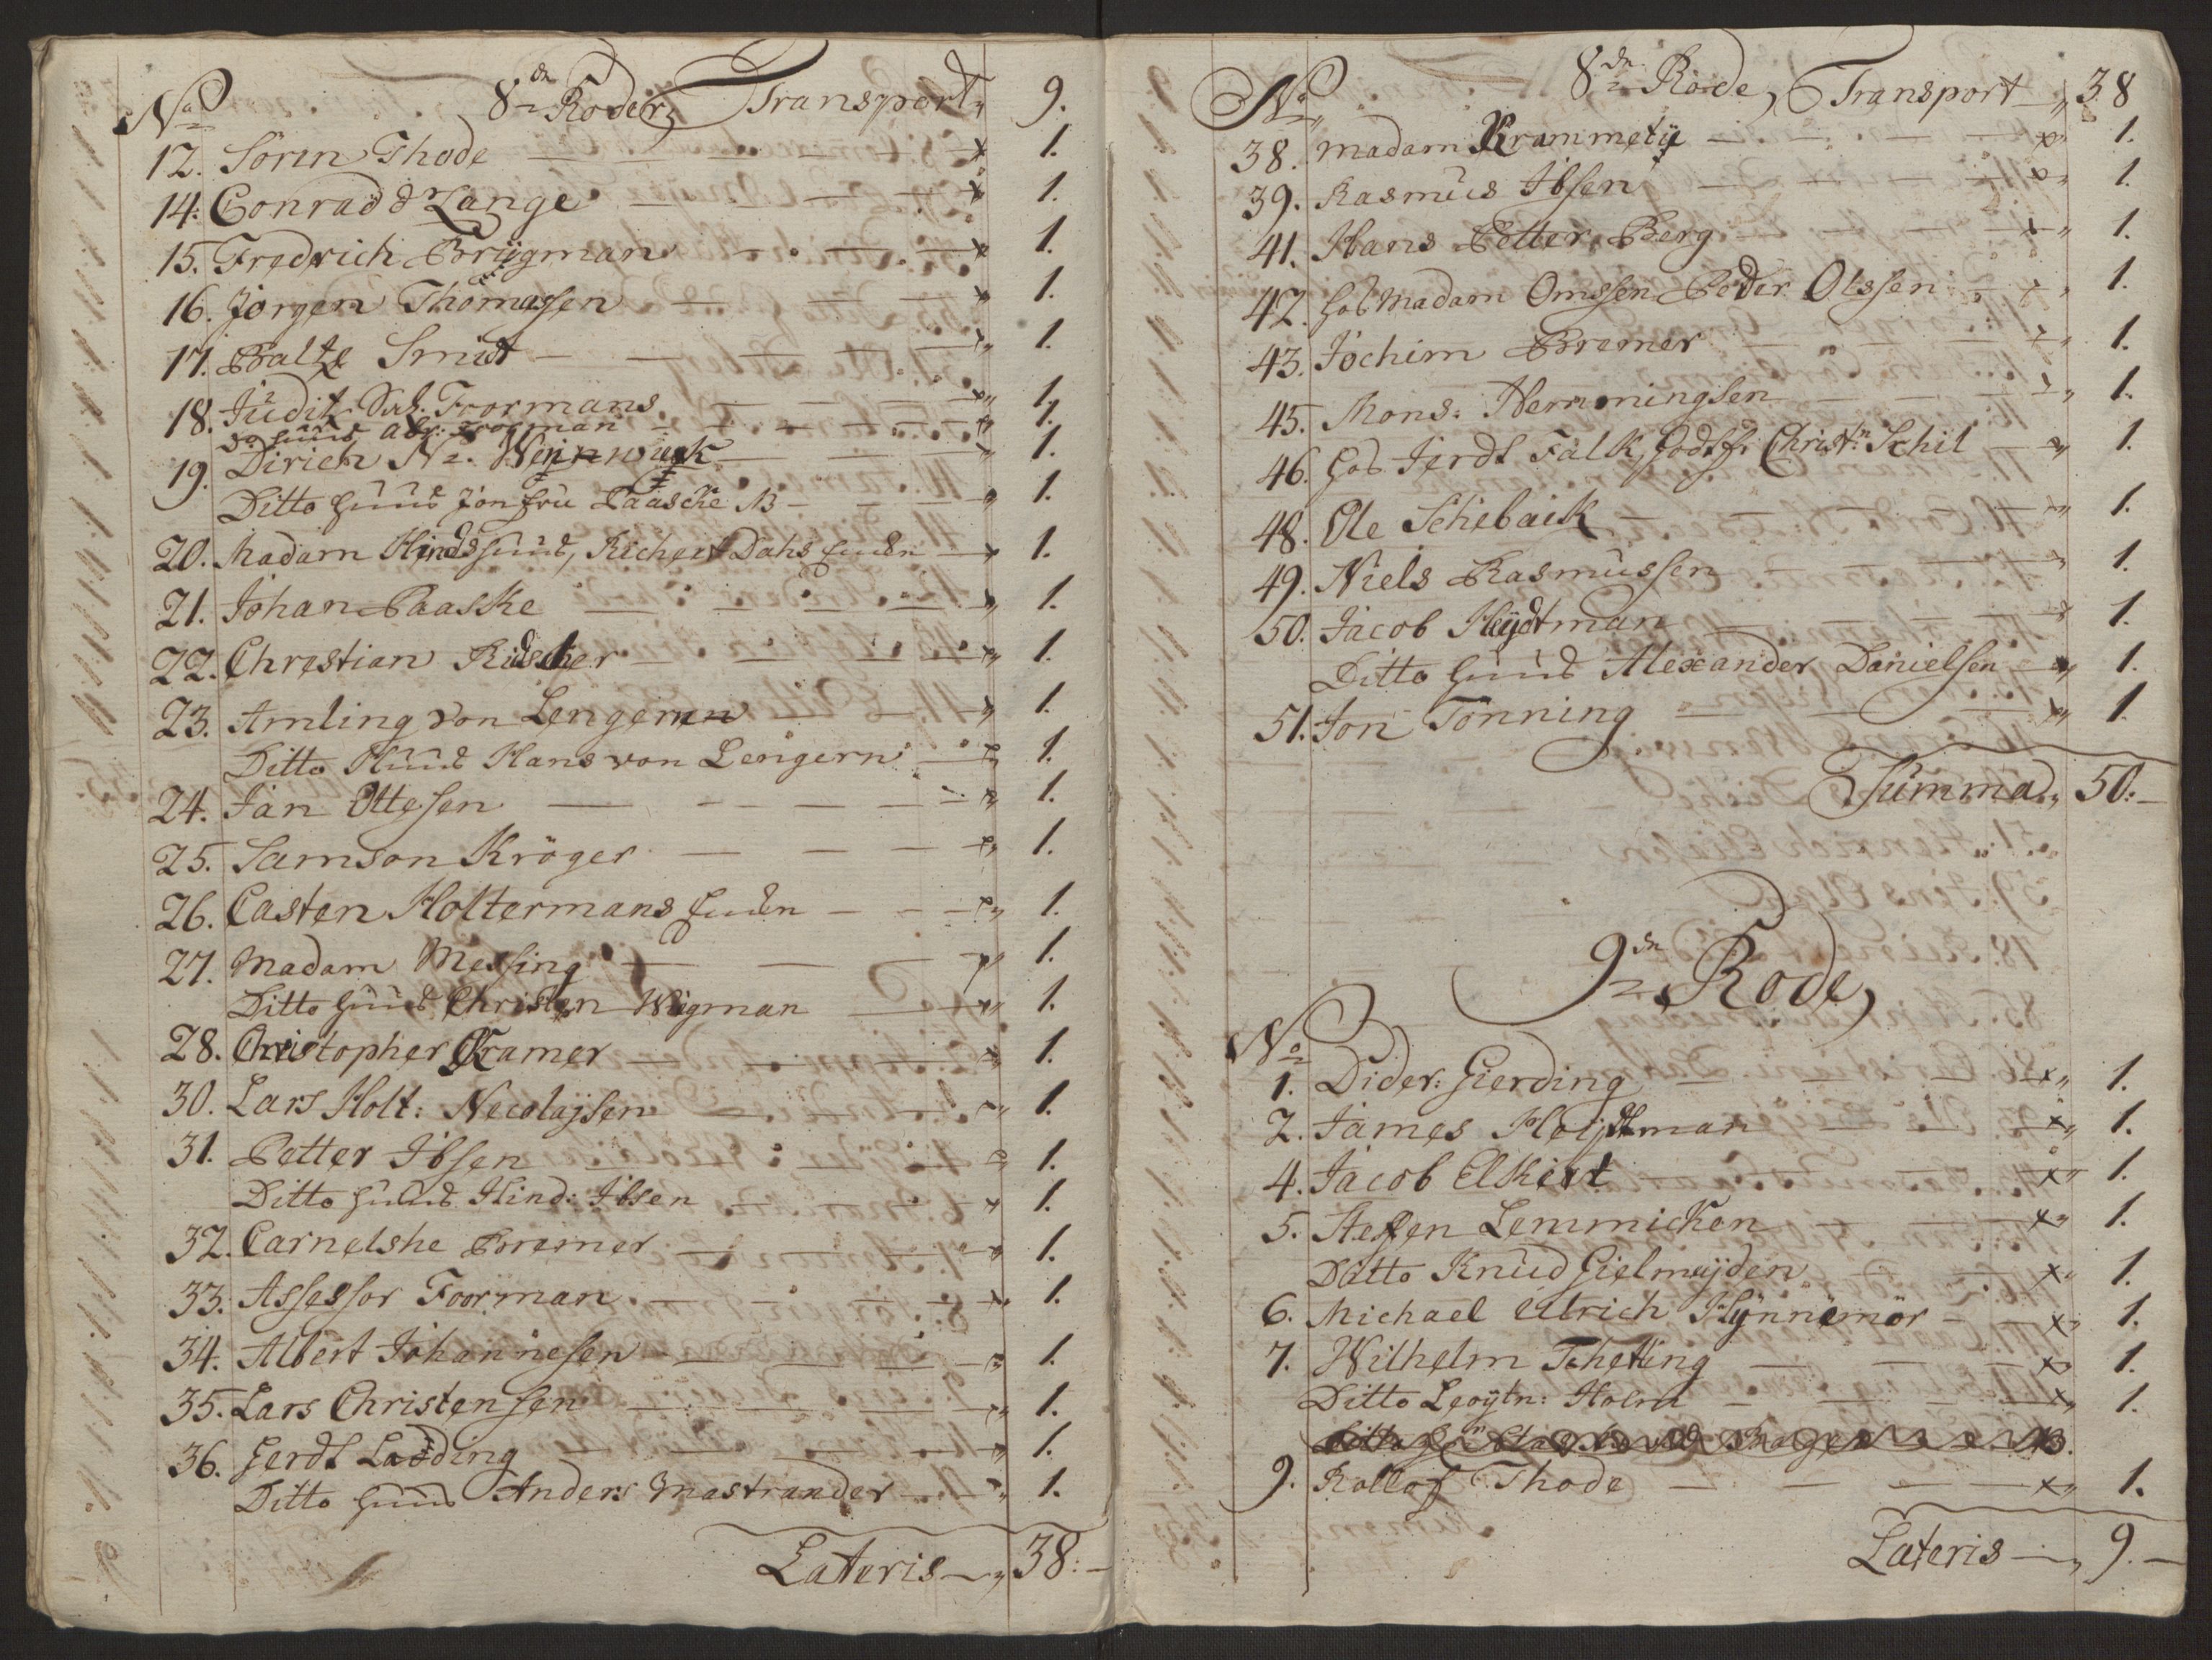 No 8de Rode, Transport „ 9.
12. Sören Thode — — — x 1.
14: Conrad d Lange — — — x 1.
15. Fredrich Brügman — — — x 1.
16. Jörgen Thomassen — — — x 1.
17. Baltz Smidt — — — x 1.
18. Judit Foormans — — — x 1.
do huus Foorman — — — 1.
19. Dirich — — — 1.
Ditto huus Jomfru Paasche — 1.
20. Madam Hinds huus, Richert Dahs — x 1.
21. Johan Paaske — — — x 1.
22. Chrestian — — — x 1.
23. Amling von Lengeren — — x 1.
Ditto Huus Hans von Lengern — x 1.
24. Jan Ottesen — — — x 1.
25. Samson Kröger — — — x 1.
26. Casten Holtermans — — — x 1.
27. Madam Messing — — — 1.
Ditto huus Christen Wigman — x 1.
28. Christopher Kramer — — — x 1.
30. Lars Holt: Necolajsen — — 1.
31. Petter Ibsen — — — 1.
Ditto huus Hind: Ibsen — — — x 1.
32. Carnelshe Bremer — — — 1.
33. Assessor Foorman — — — x 1.
34. Albert Johannesen — — — 1.
35. Lars Christensen — — — 1.
36. Gerdt Lading — — — 1.
Ditto huus Anders Mastrander — 1.
Lateris — „ 38: —
No 8de Rode, Transport — „ 38
38. Madam — — — x 1.
39. Rasmus Ibsen — — — x 1.
41. Hans Petter Berg — — — x 1.
42. hos Madam Omsen Peder Olssen — 1.
43. Jochim Bremer — — — 1.
45. Mons: Hemmingsen — — — 1.
46. hos Jerdt Falk, Christn Schil — 1.
48. Ole Schebaik — — — 1.
49. Niels Rasmussen — — — 1.
50. Jacob Heydtman — — — 1.
Ditto huus Alexander Danielsen — x 1.
51. Jon Tönning — — — x 1.
Summa „ 50: —
9de Rode,
No
1. Dider: Gierding — — — x 1.
2. James Heijdtman — — — x 1.
4. Jacob Elkert — — — x 1.
5. Steffen Lemmicken — — — x 1.
Ditto Knud Gielmeyden — — x 1.
6. Michael Ulrich Hynnemör — x 1.
7. Wilhelm Scheting — — — x 1.
Ditto Leoytn: Holm — — — x 1.
9. Rollof Thode — — — x 1.
Lateris — „ 9. —